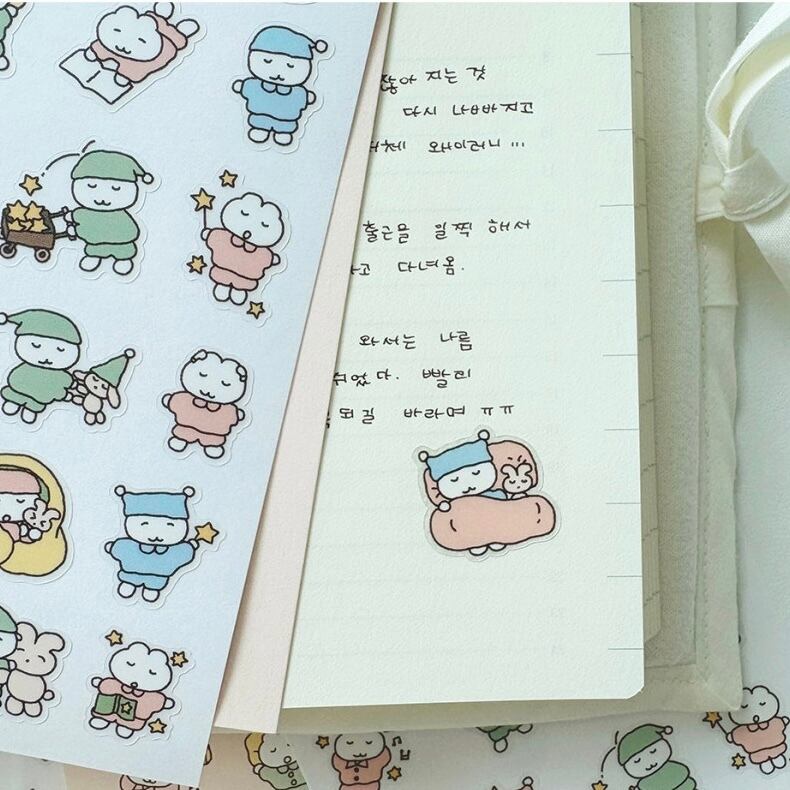 많아 지는 것
다시 나빠지고
대체 왜이러니...
출근을 일찍 해서
고 다녀옴.
와서는 나름
쉬었다. 빨리
되길 바라며 ㅠㅠ